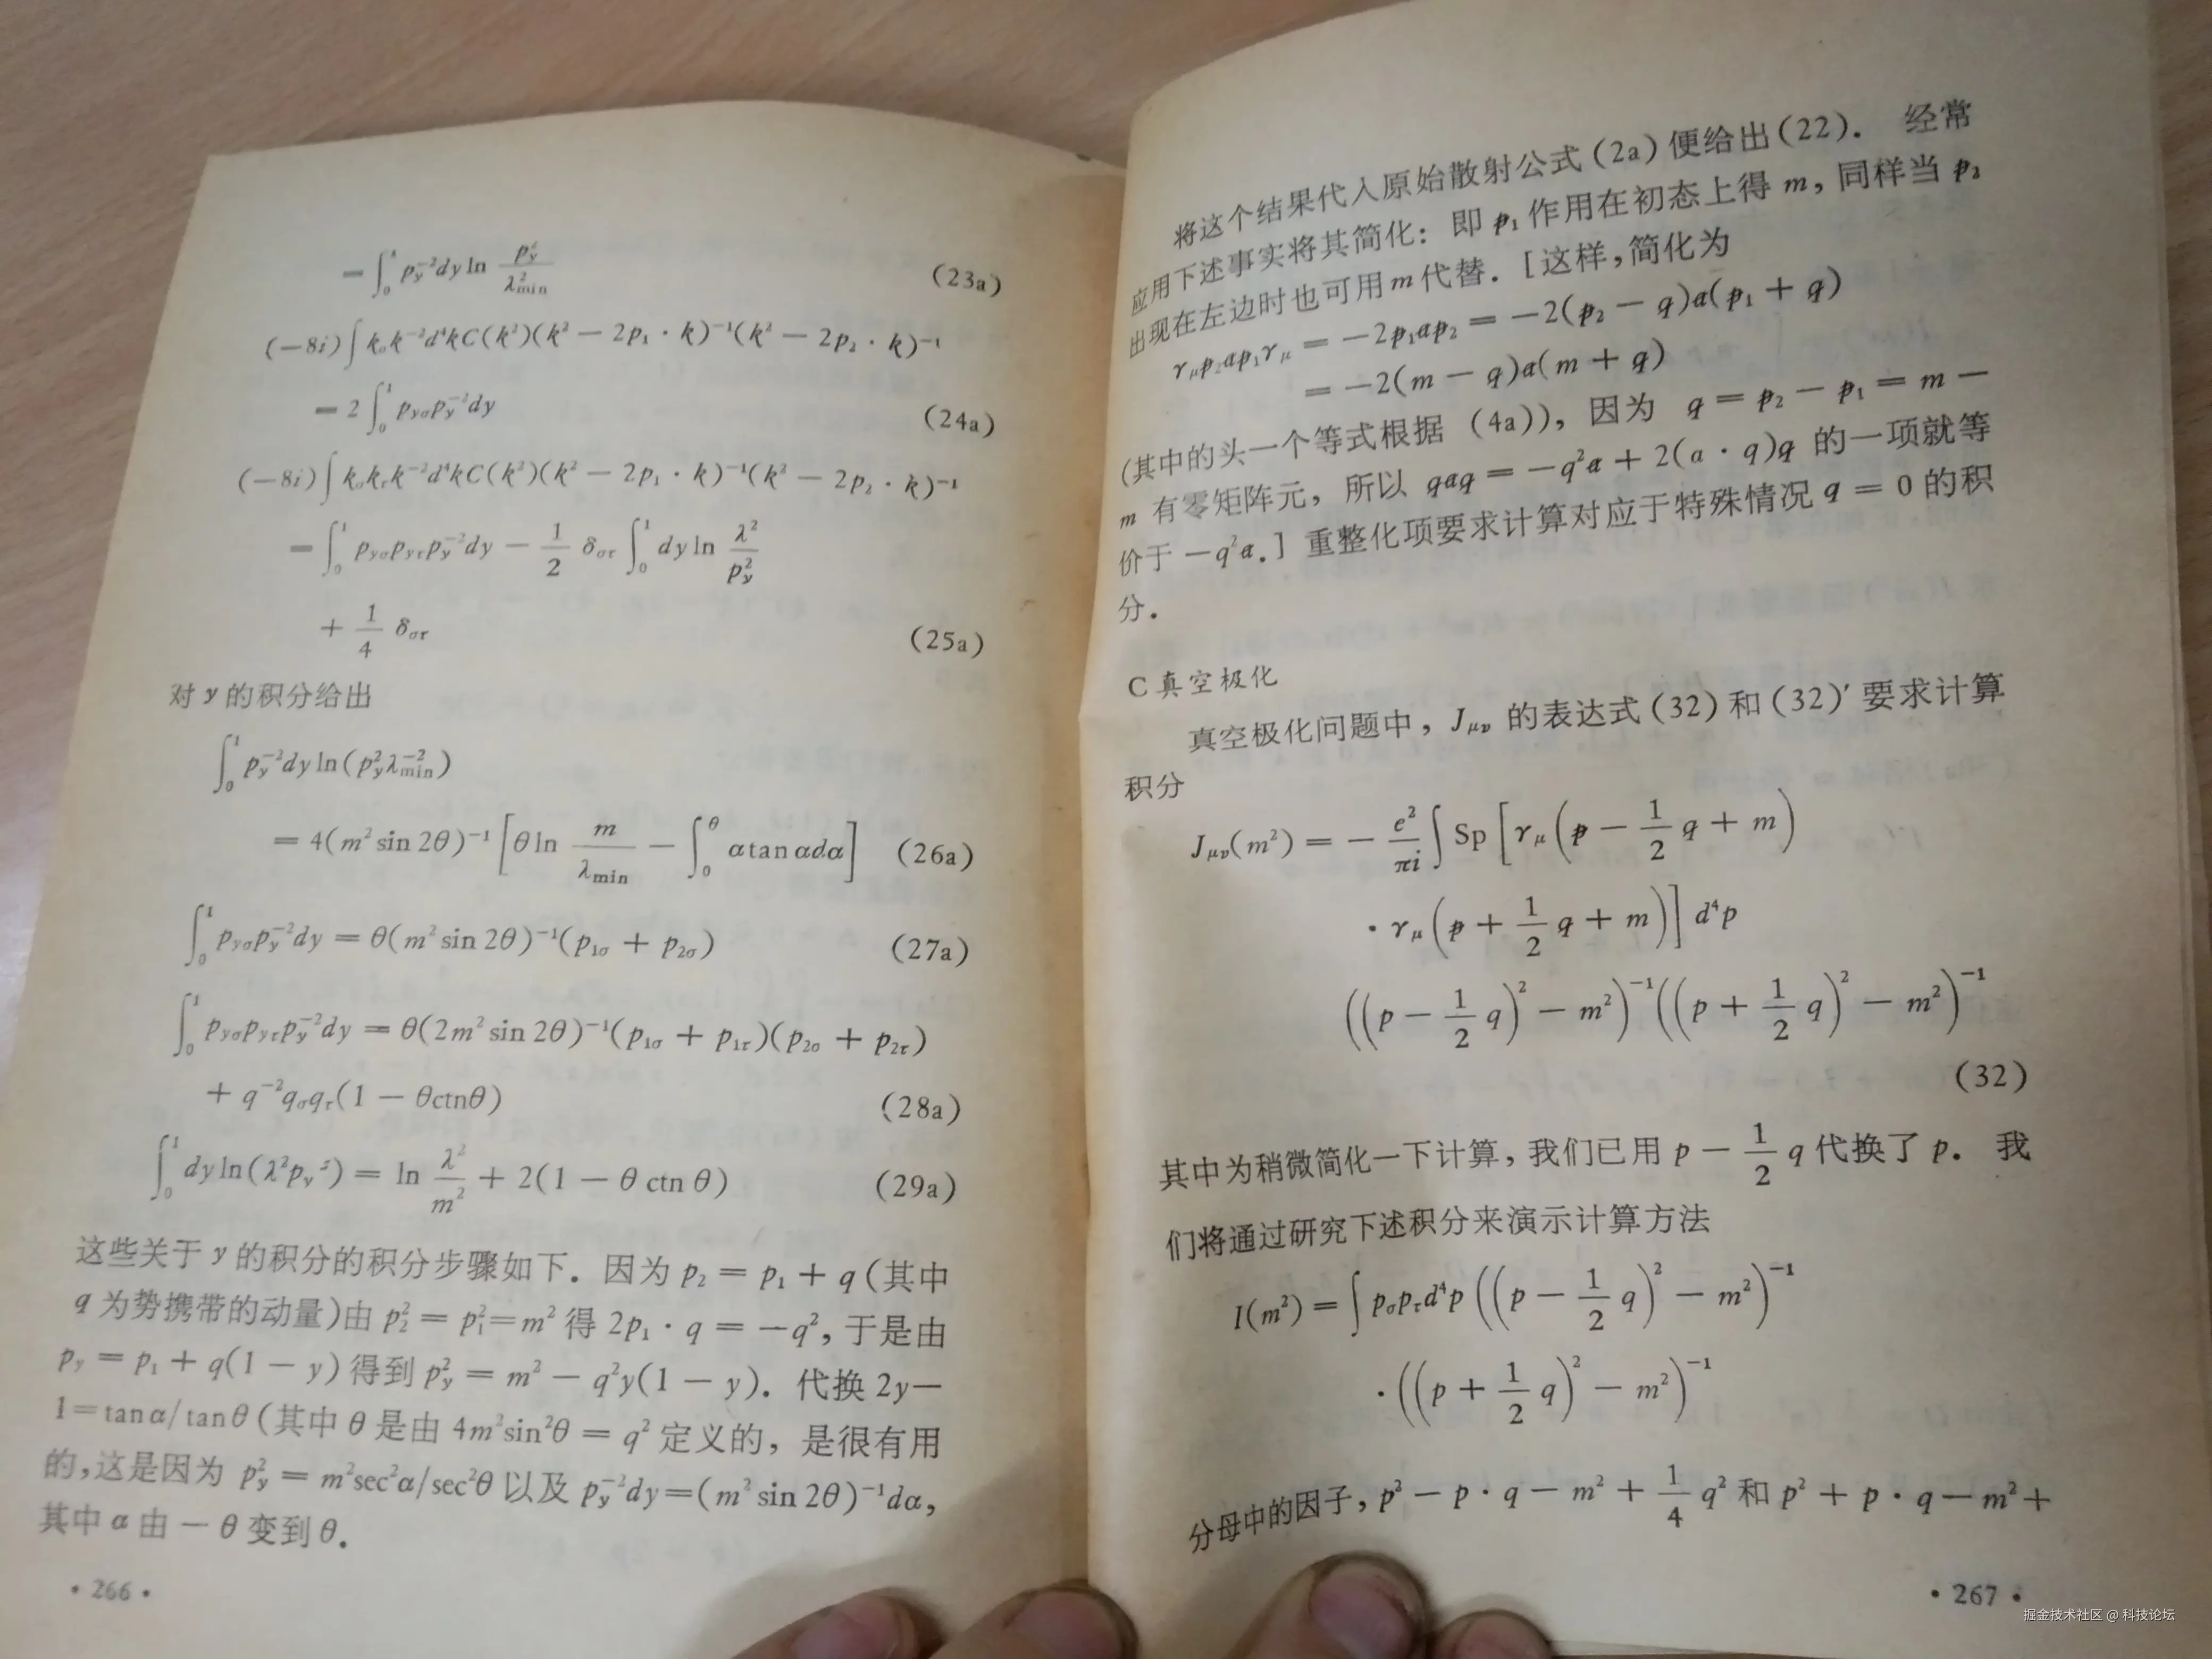 = ∫₀¹ p_y⁻²dy ln p_y²/λ²_min (23a)
(−8i)∫k_σk⁻²d⁴kC(k²)(k² − 2p₁ · k)⁻¹(k² − 2p₂ · k)⁻¹
= 2∫₀¹ p_yσp_y⁻²dy (24a)
(−8i)∫k_σk_τk⁻²d⁴kC(k²)(k² − 2p₁ · k)⁻¹(k² − 2p₂ · k)⁻¹
= ∫₀¹ p_yσp_yτp_y⁻²dy − 1/2 δ_στ ∫₀¹ dy ln λ²/p_y²
+ 1/4 δ_στ (25a)
对 y 的积分给出
∫₀¹ p_y⁻²dy ln(p_y²λ_min⁻²)
= 4(m² sin 2θ)⁻¹[θ ln m/λ_min − ∫₀^θ α tan αdα] (26a)
∫₀¹ p_yσp_y⁻²dy = θ(m² sin 2θ)⁻¹(p₁σ + p₂σ) (27a)
∫₀¹ p_yσp_yτp_y⁻²dy = θ(2m² sin 2θ)⁻¹(p₁σ + p₁τ)(p₂σ + p₂τ)
+ q⁻²q_σq_τ(1 − θctnθ) (28a)
∫₀¹ dy ln(λ²p_y⁻²) = ln λ²/m² + 2(1 − θ ctn θ) (29a)
这些关于 y 的积分的积分步骤如下．因为 p₂ = p₁ + q(其中
q 为势携带的动量)由 p₂² = p₁² = m² 得 2p₁ · q = −q², 于是由
p_y = p₁ + q(1 − y) 得到 p_y² = m² − q²y(1 − y)．代换 2y−
1=tanα/tanθ(其中 θ 是由 4m²sin²θ = q² 定义的，是很有用
的,这是因为 p_y² = m²sec²α/sec²θ 以及 p_y⁻²dy=(m² sin 2θ)⁻¹dα,
其中 α 由 −θ 变到 θ．
• 266 •
将这个结果代入原始散射公式(2a)便给出(22)． 经常
应用下述事实将其简化：即 p̸₁ 作用在初态上得 m, 同样当 p̸₂
出现在左边时也可用 m 代替．[这样,简化为
γ_μp̸₂a̸p̸₁γ_μ = −2p̸₁a̸p̸₂ = −2(p̸₂ − q̸)a̸(p̸₁ + q̸)
= −2(m − q̸)a̸(m + q̸)
(其中的头一个等式根据 (4a)), 因为 q̸ = p̸₂ − p̸₁ = m −
m 有零矩阵元，所以 q̸a̸q̸ = −q²a̸ + 2(a · q)q̸ 的一项就等
价于 −q²a̸.] 重整化项要求计算对应于特殊情况 q = 0 的积
分．
C 真空极化
真空极化问题中，J_μν 的表达式(32)和(32)′要求计算
积分
J_μν(m²) = − e²/πi ∫ Sp[γ_μ(p̸ − 1/2 q̸ + m)
· γ_μ(p̸ + 1/2 q̸ + m)] d⁴p
((p − 1/2 q)² − m²)⁻¹((p + 1/2 q)² − m²)⁻¹
(32)
其中为稍微简化一下计算，我们已用 p − 1/2 q 代换了 p． 我
们将通过研究下述积分来演示计算方法
I(m²) = ∫p_σp_τd⁴p((p − 1/2 q)² − m²)⁻¹
· ((p + 1/2 q)² − m²)⁻¹
分母中的因子，p² − p · q − m² + 1/4 q² 和 p² + p · q − m² +
• 267 •
掘金技术社区 @ 科技论坛